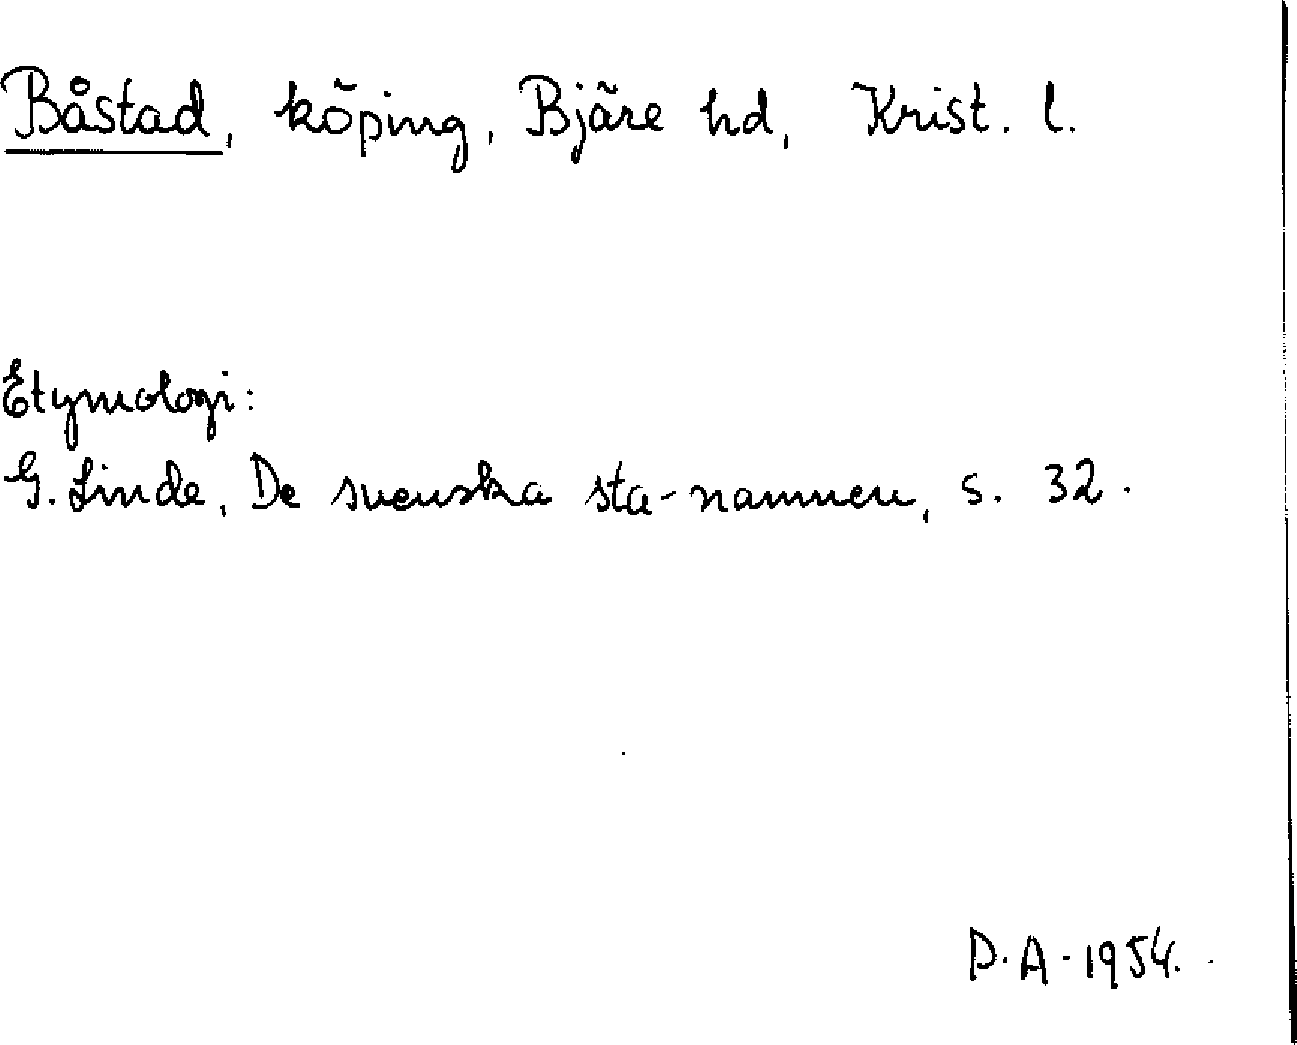 Båstad, köping, Bjäre hd, Krist. l.
Etymologi:
G. Linde, De svenska sta-namnen, s. 32.
D.A. 1954.